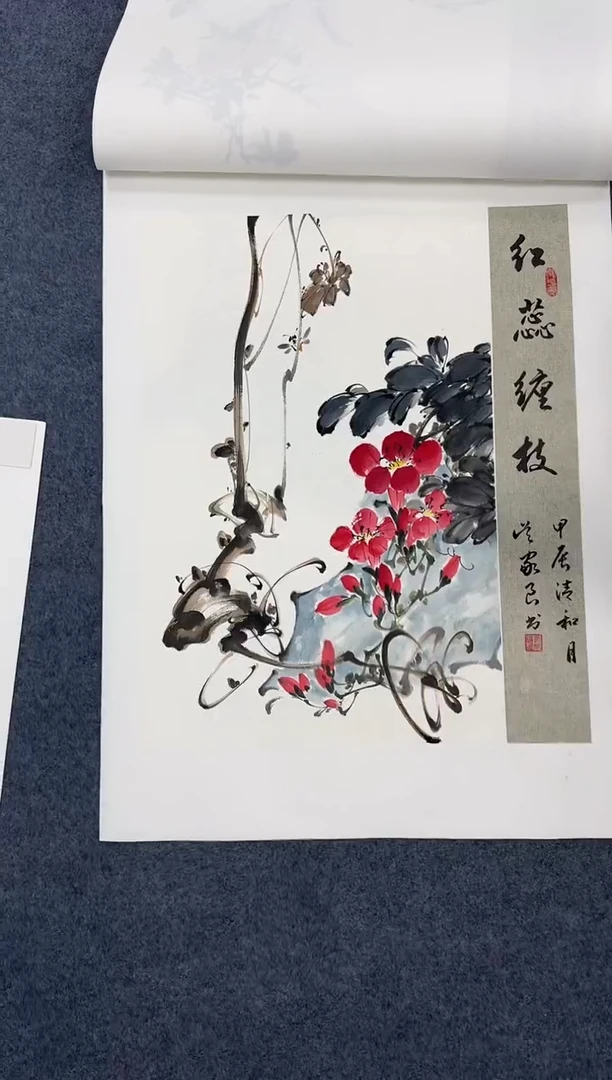 红蕊缠枝
甲辰清和月
吴家良书